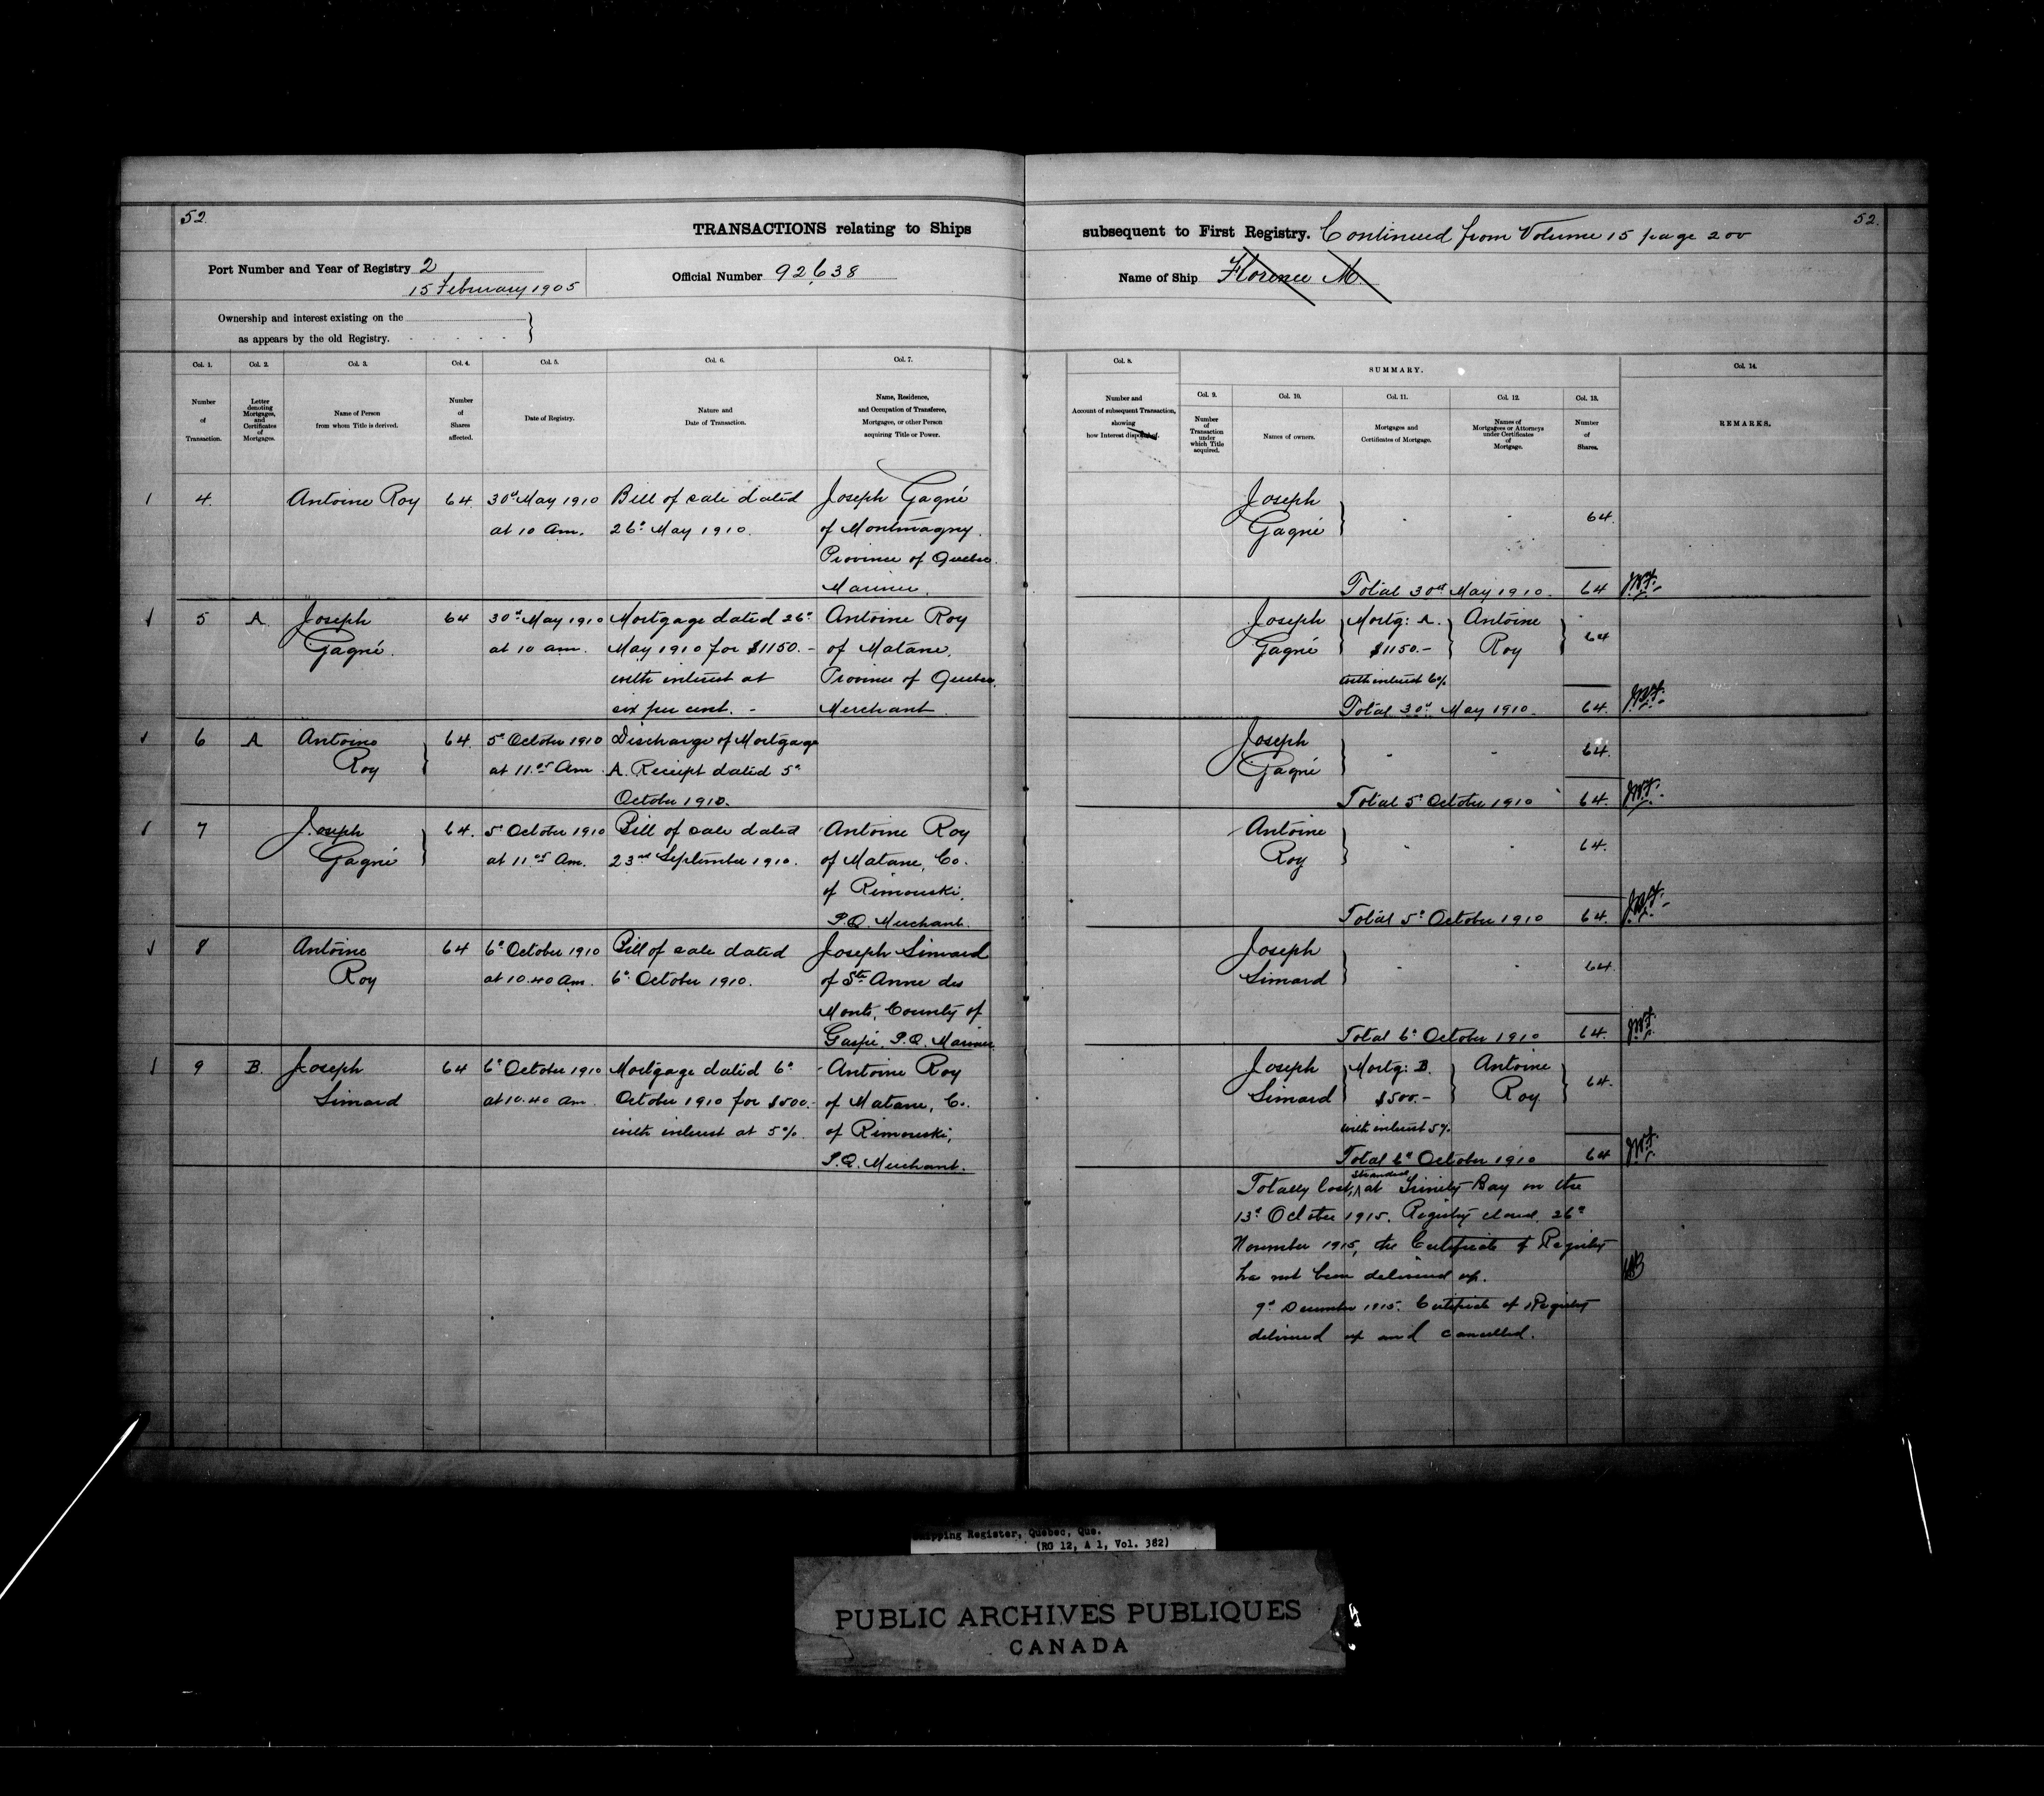 52.
TRANSACTIONS relating to Ships
subsequent to First Registry. Continued from Volume 15 page 200
52.
Port Number and Year of Registry 2
15 February 1905
Official Number 92,638
Name of Ship Florence M.
Ownership and interest existing on the
as appears by the old Registry.
Col. 1.
Number
of
Transaction.
Col. 2.
Letter
denoting
Mortgages,
and
Certificates
of
Mortgages.
Col. 3.
Name of Person
from whom Title is derived.
Col. 4.
Number
of
Shares
affected.
Col. 5.
Date of Registry.
Col. 6.
Nature and
Date of Transaction.
Col. 7.
Name, Residence,
and Occupation of Transferee,
Mortgagee, or other Person
acquiring Title or Power.
Col. 8.
Number and
Account of subsequent Transaction,
showing
how Interest disposed of.
SUMMARY.
Col. 9.
Number
of
Transaction
under
which Title
acquired.
Col. 10.
Names of owners.
Col. 11.
Mortgages and
Certificates of Mortgage.
Col. 12.
Names of
Mortgagees or Attorneys
under Certificates
of
Mortgage.
Col. 13.
Number
of
Shares.
Col. 14.
REMARKS.
4. Antoine Roy 64. 30d May 1910 Bill of sale dated Joseph Gagné
at 10 am. 26d May 1910. of Montmagny.
Province of Quebec.
Mariner.
Joseph
Gagné 64.
Total 30d May 1910. 64
5 A Joseph 64 30d May 1910 Mortgage dated 26d Antoine Roy
Gagné. at 10 am. May 1910 for $1150.- of Matane,
with interest at Province of Quebec.
six per cent. - Merchant.
Joseph Mortg: A. Antoine
Gagné $1150.- Roy 64
with interest 6%
Total 30d May 1910. 64.
6 A Antoine 64. 5d October 1910 Discharge of Mortgage
Roy at 11.05 Am. A. Receipt dated 5d
October 1910.
Joseph
Gagné 64.
Total 5d October 1910 64.
7 Joseph 64. 5d October 1910 Bill of sale dated Antoine Roy
Gagné at 11.05 Am. 23rd September 1910. of Matane, Co.
of Rimouski,
P.Q. Merchant.
Antoine
Roy 64.
Total 5d October 1910 64.
8 Antoine 64 6d October 1910 Bill of sale dated Joseph Simard
Roy at 10.40 Am. 6d October 1910. of Ste Anne des
Monts, County of
Gaspé, P.Q. Mariner
Joseph
Simard 64.
Total 6d October 1910 64.
9 B. Joseph 64 6d October 1910 Mortgage dated 6d Antoine Roy
Simard at 10.40 am. October 1910 for $500.- of Matane, Co.
with interest at 5%. of Rimouski,
P.Q. Merchant.
Joseph Mortg: B. Antoine
Simard $500.- Roy 64.
with interest 5%.
Total 6d October 1910 64
Totally lost, stranded at Trinity Bay on the
13d October 1915. Registry closed, 26d
November 1915, the Certificate of Registry
has not been delivered up.
9d December 1915. Certificate of Registry
delivered up and cancelled.
Shipping Register, Quebec, Que.
(RG 12, A 1, Vol. 382)
PUBLIC ARCHIVES PUBLIQUES
CANADA